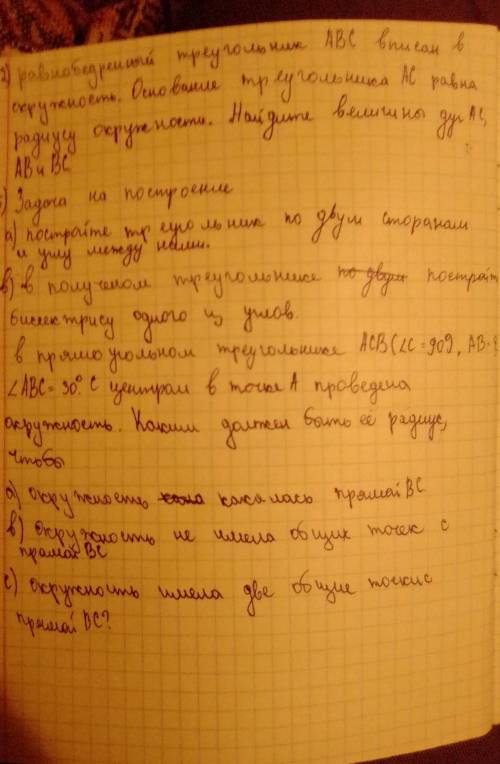 2) равнобедренный треугольник ABC вписан в
окружность. Основание треугольника AC равна
радиусу окружности. Найдите величины дуг AC,
AB и BC
) Задача на построение
а) постройте треугольник по двум сторонам
и углу между ними.
в) в полученом треугольнике по двум построит
биссектрису одного из углов.
в прямоугольном треугольнике ACB (∠C = 90°, AB =
∠ABC = 30°. С центром в точке A проведена
окружность. Каким должен быть её радиус,
чтобы
а) окружность касалась прямой BC
в) окружность не имела общих точек с
прямой BC
с) окружность имела две общие точки с
прямой BC?